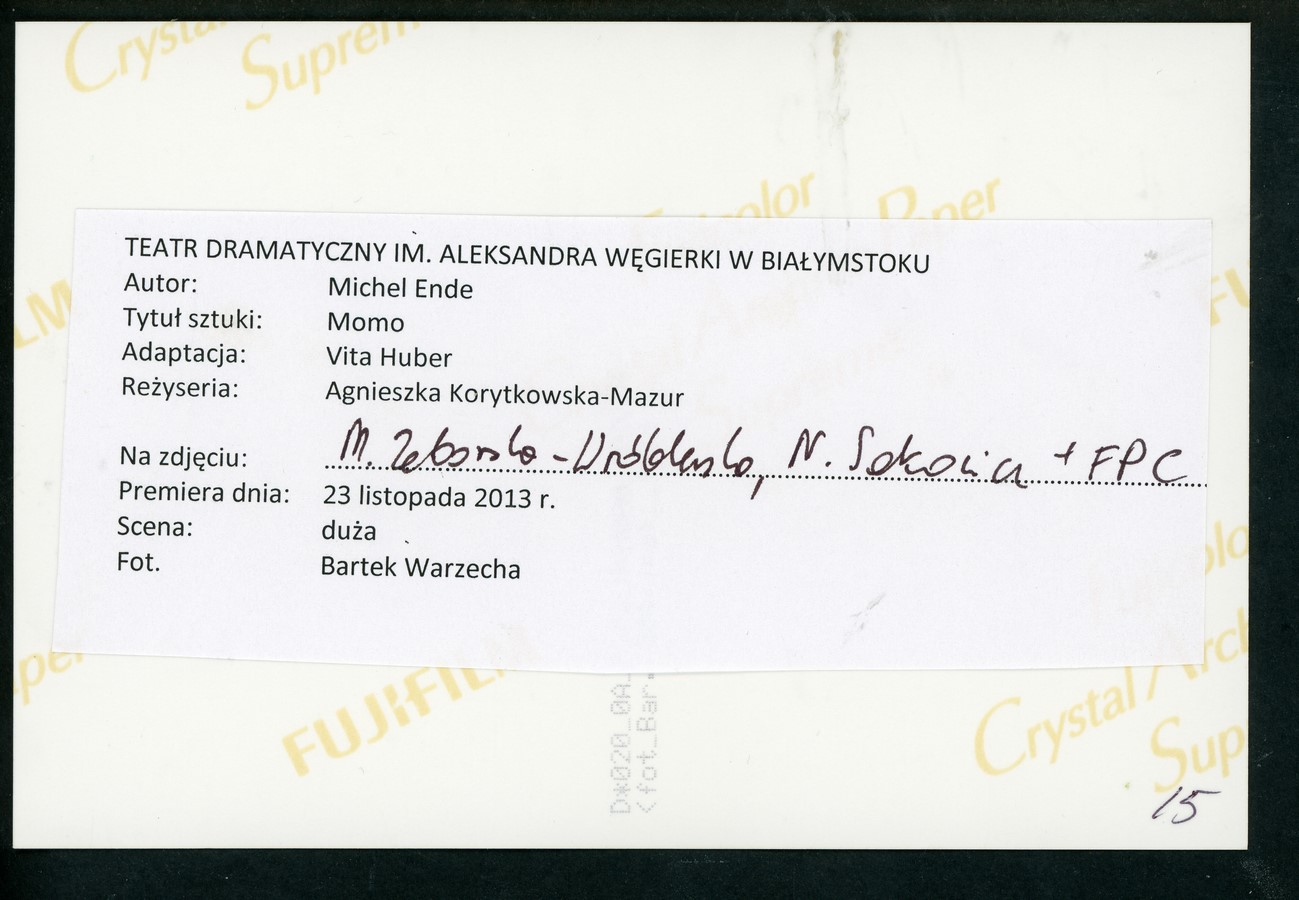 Crystal
Suprem
color Paper
TEATR DRAMATYCZNY IM. ALEKSANDRA WĘGIERKI W BIAŁYMSTOKU
Autor: Michel Ende
Tytuł sztuki: Momo
Adaptacja: Vita Huber
Reżyseria: Agnieszka Korytkowska-Mazur
Na zdjęciu: M. N. + FPC
Premiera dnia: 23 listopada 2013 r.
Scena: duża
Fot. Bartek Warzecha
FUJIFILM
Crystal Arch
Sup
D*020_0A_
<fot_Bar.
15